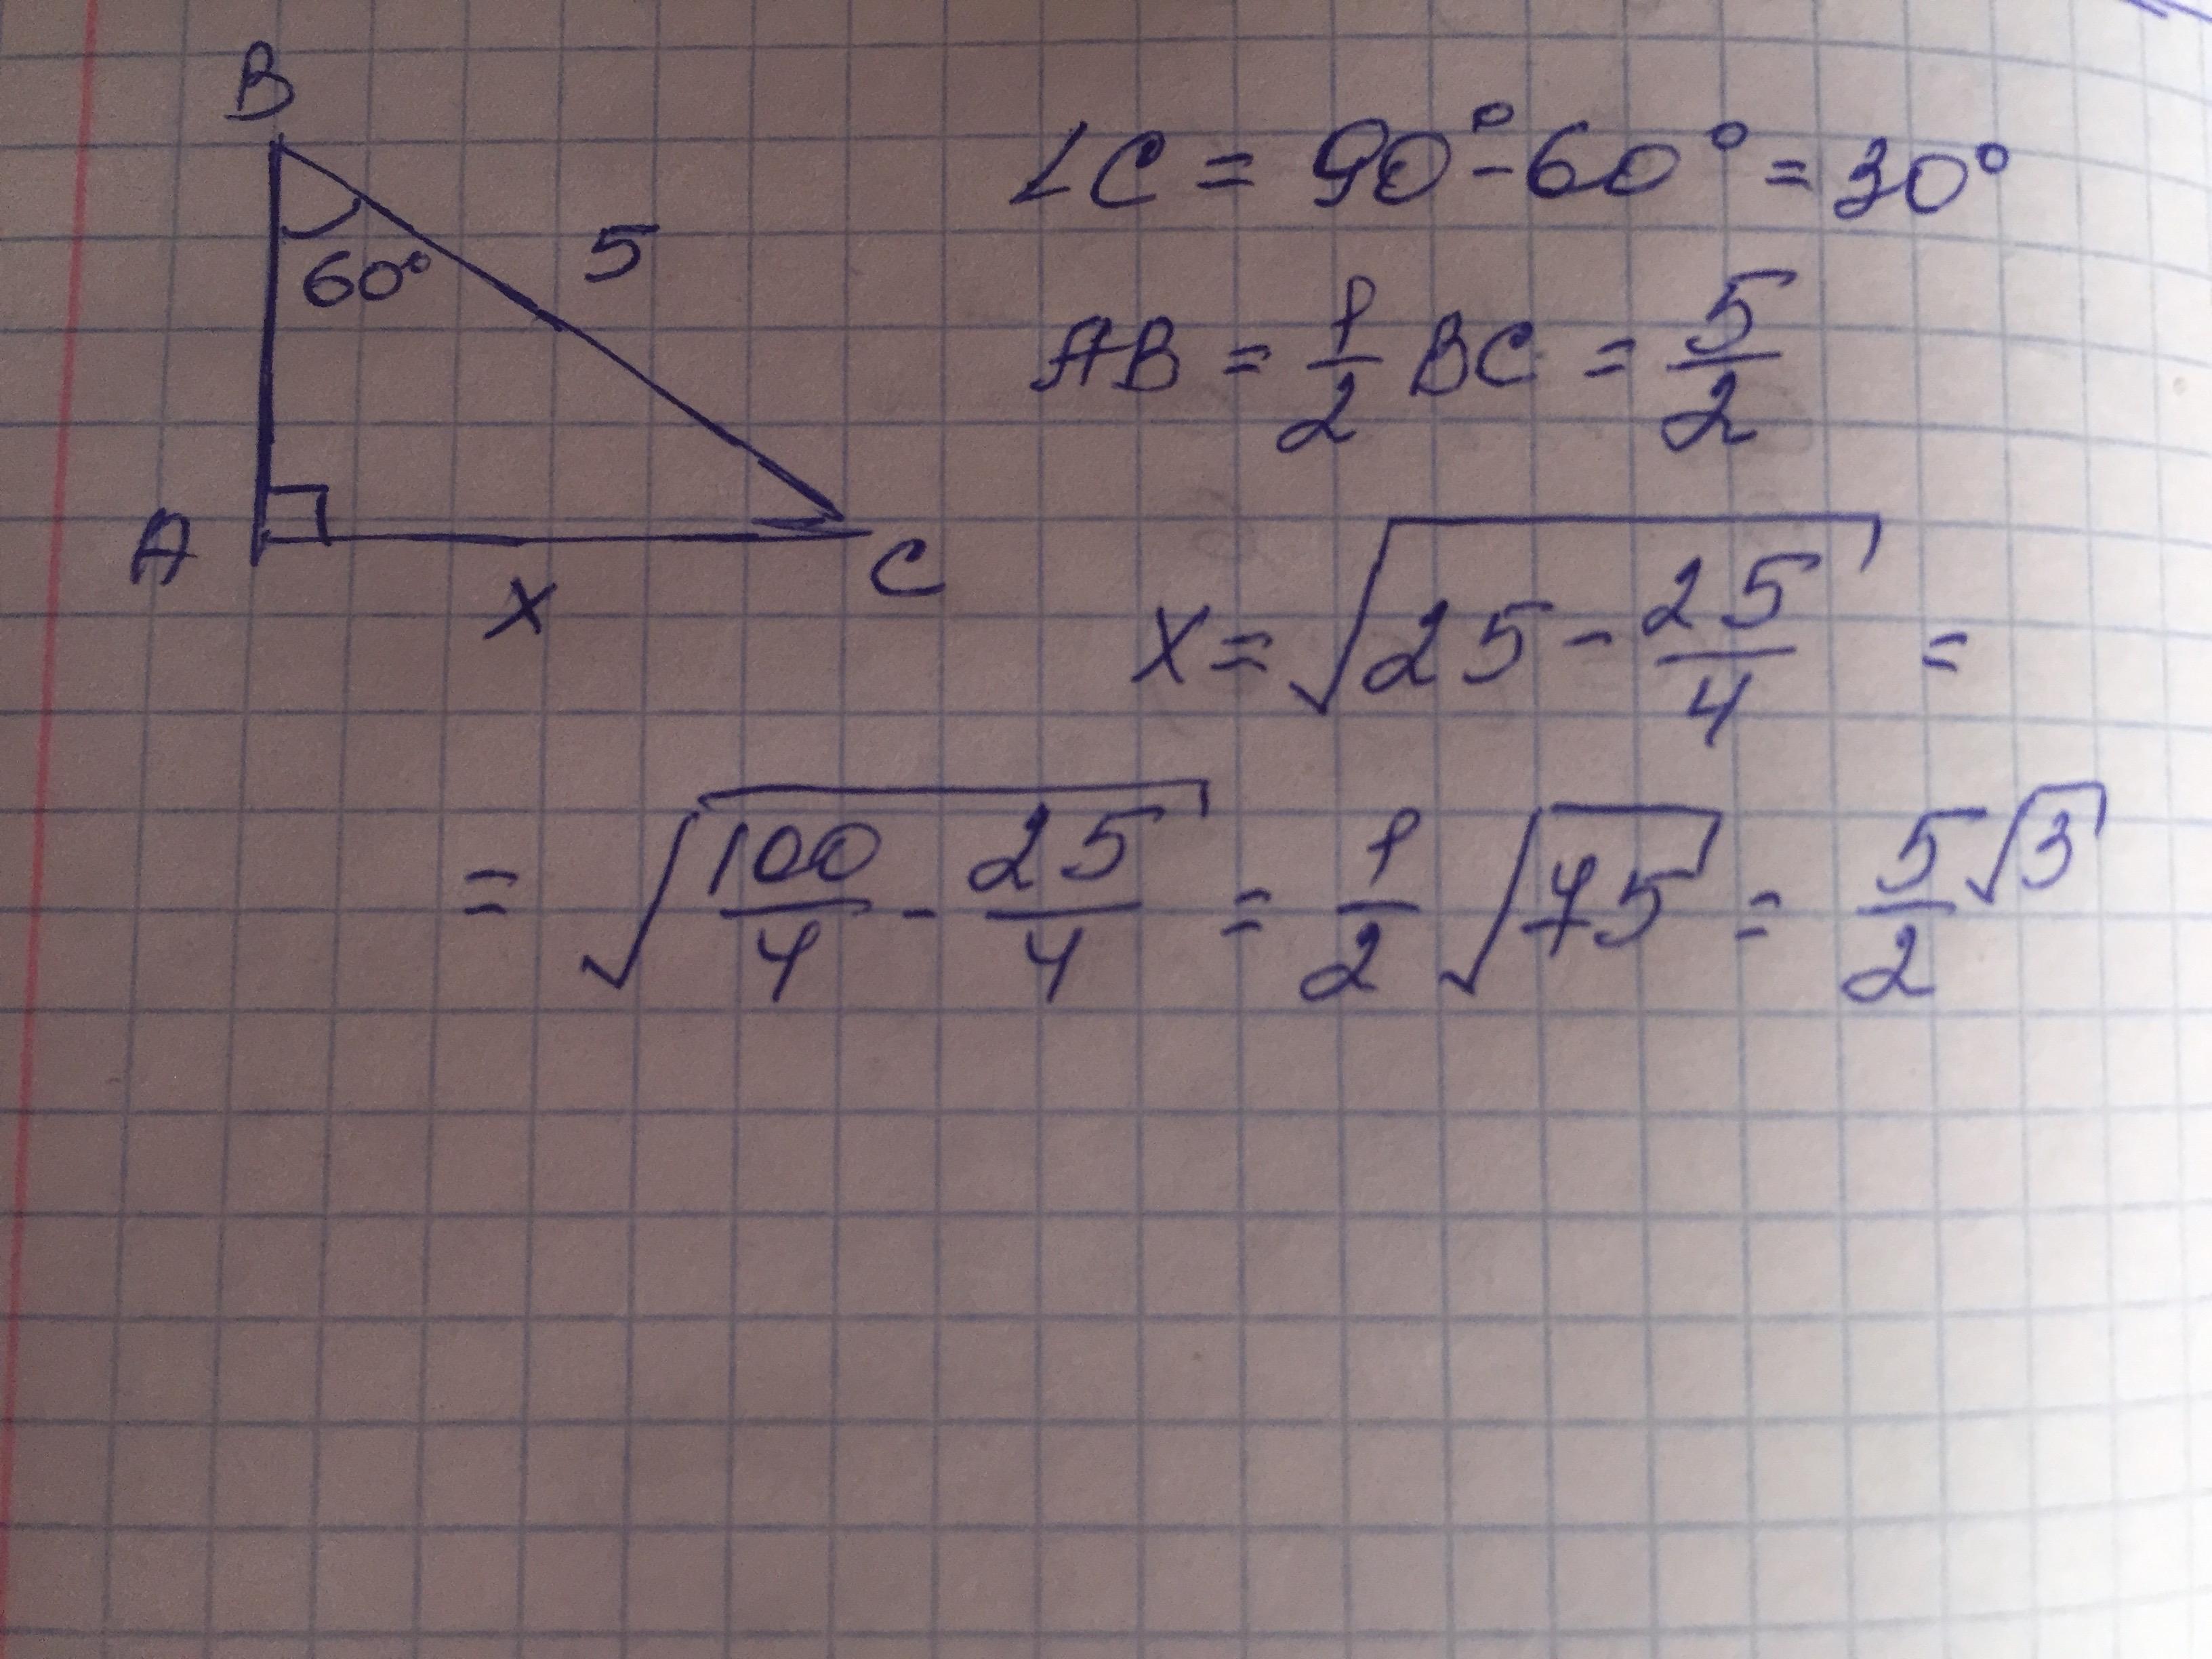 B
60°
5
A
x
C
∠C = 90° - 60° = 30°
AB = 1/2 BC = 5/2
x = √(25 - 25/4) =
= √(100/4 - 25/4) = 1/2 √75 = 5/2 √3